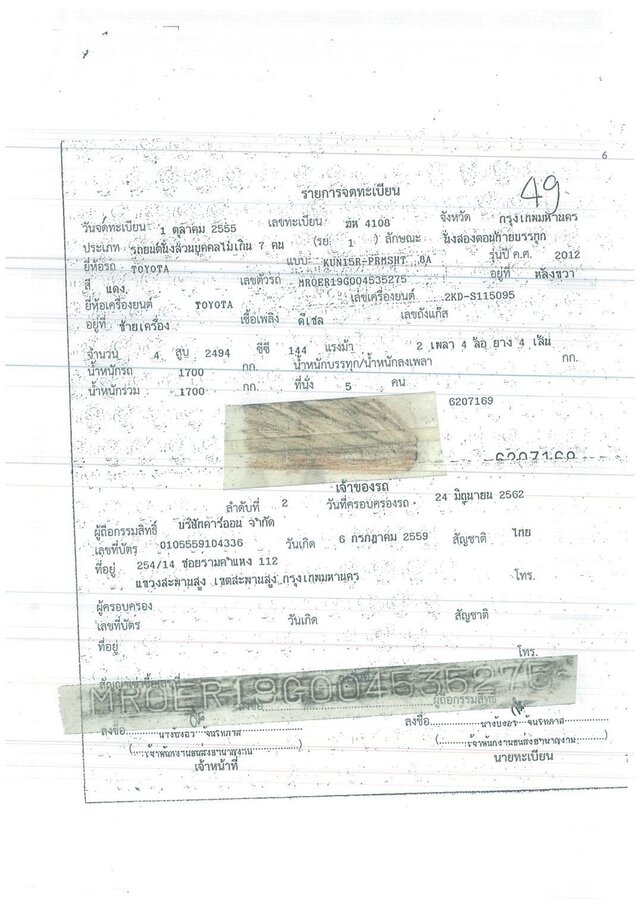 6
49
รายการจดทะเบียน
วันจดทะเบียน 1 ตุลาคม 2555 เลขทะเบียน ฒห 4108 จังหวัด กรุงเทพมหานคร
ประเภท รถยนต์นั่งส่วนบุคคลไม่เกิน 7 คน (รย. 1 ) ลักษณะ นั่งสองตอนท้ายบรรทุก
ยี่ห้อรถ TOYOTA แบบ KUN15R-PRMSHT 8A รุ่นปี ค.ศ. 2012
สี แดง. เลขตัวรถ MROER19G004535275 อยู่ที่ หลังขวา
ยี่ห้อเครื่องยนต์ TOYOTA เลขเครื่องยนต์ 2KD-S115095
อยู่ที่ ซ้ายเครื่อง เชื้อเพลิง ดีเซล เลขถังแก๊ส
จำนวน 4 สูบ 2494 ซีซี 144 แรงม้า 2 เพลา 4 ล้อ ยาง 4 เส้น
น้ำหนักรถ 1700 กก. น้ำหนักบรรทุก/น้ำหนักลงเพลา กก.
น้ำหนักรวม 1700 กก. ที่นั่ง 5 คน
6207169
6207169
เจ้าของรถ
ลำดับที่ 2 วันที่ครอบครองรถ 24 มิถุนายน 2562
ผู้ถือกรรมสิทธิ์ บริษัทคาร์ออน จำกัด
เลขที่บัตร 0105559104336 วันเกิด 6 กรกฎาคม 2559 สัญชาติ ไทย
ที่อยู่ 254/14 ซอยรามคำแหง 112
แขวงสะพานสูง เขตสะพานสูง กรุงเทพมหานคร โทร.
ผู้ครอบครอง
เลขที่บัตร วันเกิด สัญชาติ
ที่อยู่
โทร.
MROER19G004535275
ผู้ถือกรรมสิทธิ์
ลงชื่อ ลงชื่อ
(เจ้าพนักงานขนส่งชำนาญงาน) (เจ้าพนักงานขนส่งชำนาญงาน)
เจ้าหน้าที่ นายทะเบียน